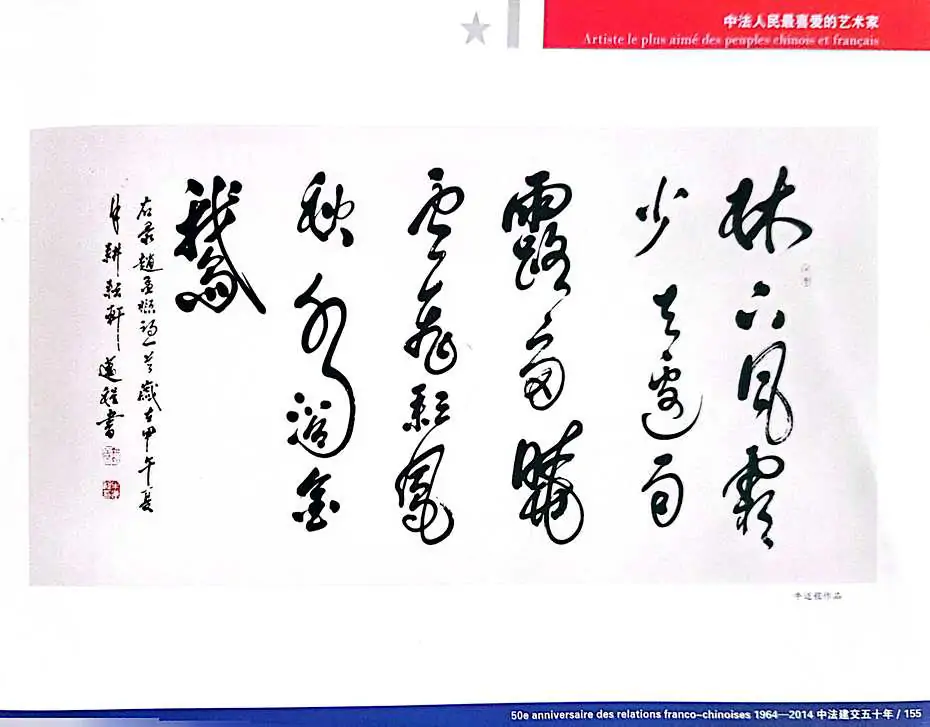 中法人民最喜爱的艺术家
Artiste le plus aimé des peuples chinois et français
林下風霜
少天邊雨
露多曉
雲飛彩鳳
秋水浴金
鵝
右录趙孟頫詩一首歲在甲午夏
月耕耘軒遂程書
牛遂程作品
50e anniversaire des relations franco-chinoises 1964—2014 中法建交五十年 / 155